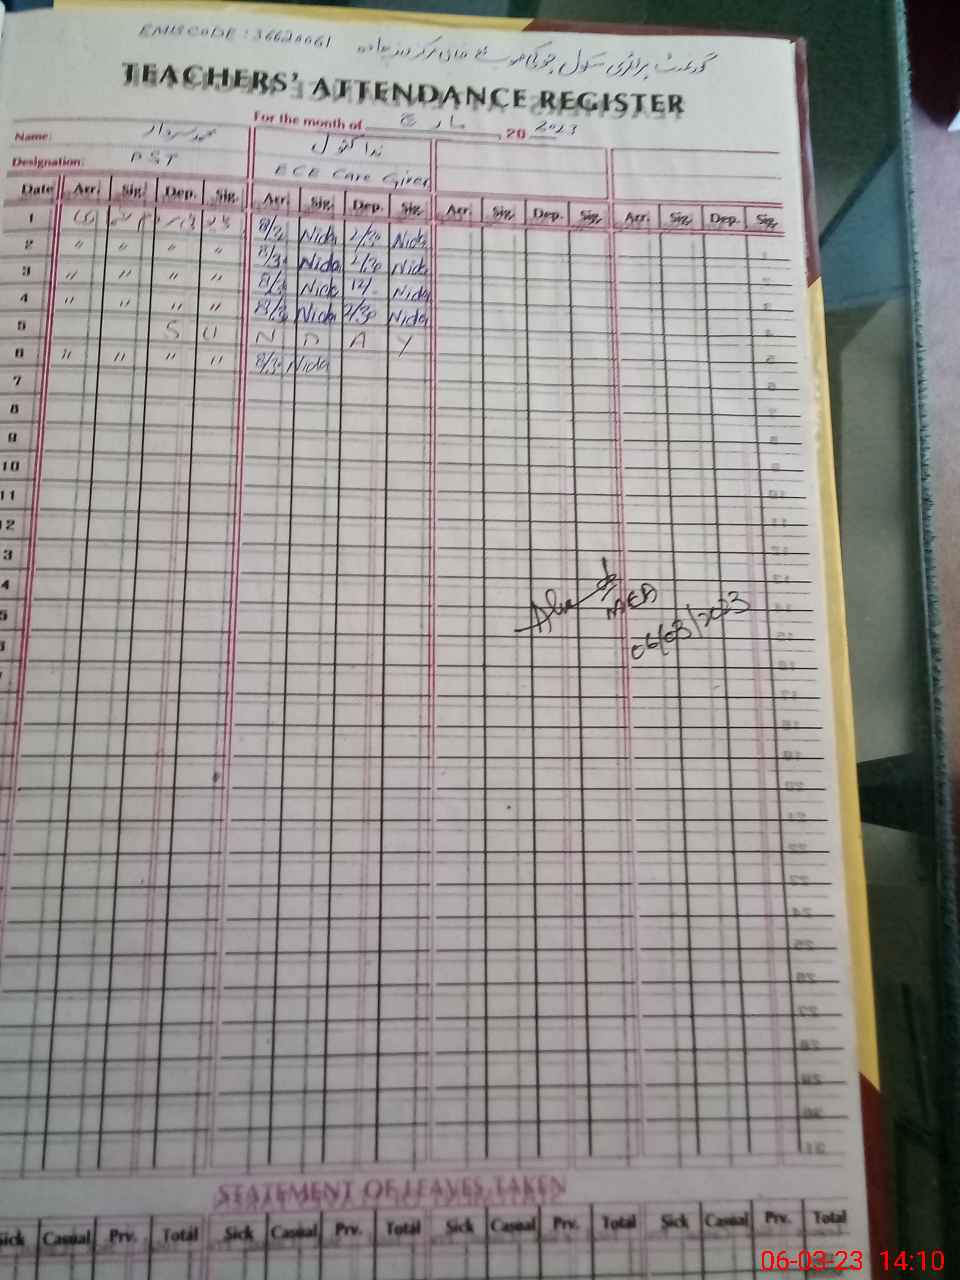 EMIS CODE: 36620061 گورنمنٹ پرائمری سکول
TEACHERS' ATTENDANCE REGISTER
For the month of مارچ , 20 2023
Name: محمد سردار ندا کنول
Designation: PST ECE Care Giver
Date Arr. Sig. Dep. Sig. Arr. Sig. Dep. Sig. Arr. Sig. Dep. Sig. Arr. Sig. Dep. Sig.
1 8/30 Nida 2/30 Nida
2 " " " " 8/30 Nida 2/30 Nida
3 " " " " 8/30 Nida 12/- Nida
4 " " " " 8/30 Nida 2/30 Nida
5 S U N D A Y
6 " " " " 8/30 Nida
7
8
9
10
11
12
3
4
5
MEA
06/03/2023
STATEMENT OF LEAVES TAKEN
Sick Casual Prv. Total Sick Casual Prv. Total Sick Casual Prv. Total Sick Casual Prv. Total
06-03-23 14:10